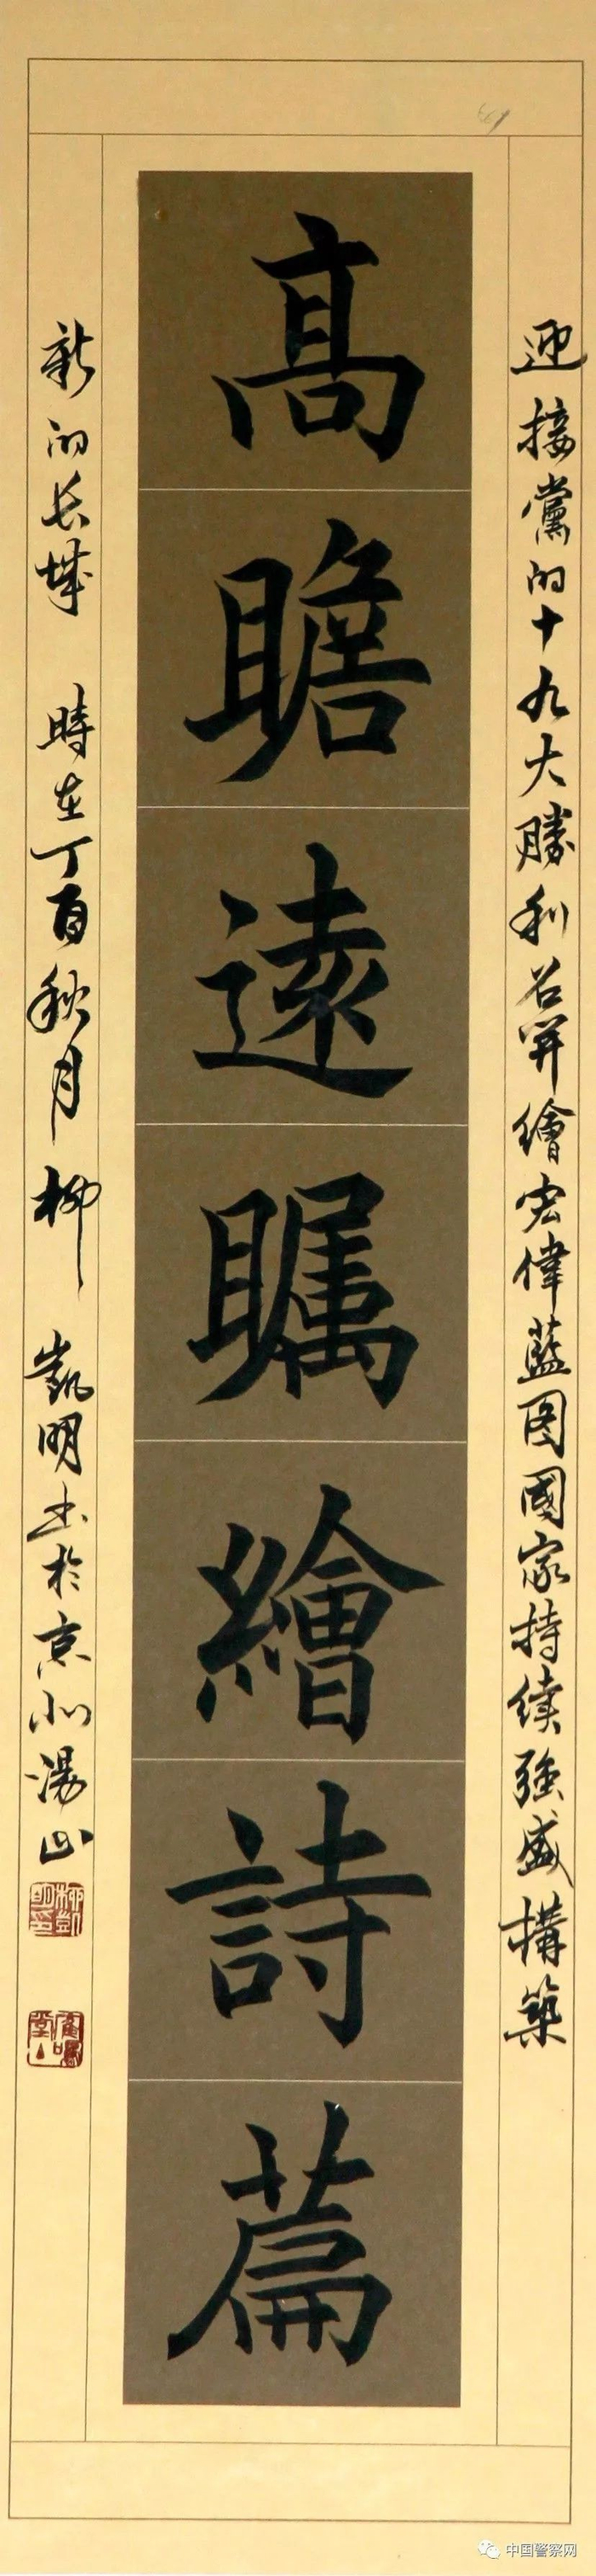 迎接黨的十九大勝利召開繪宏偉藍图國家持续强盛構築
高瞻遠瞩繪詩篇
新的长城 時在丁酉秋月柳凯明书於京北湯山
柳凱明印
中国警察网